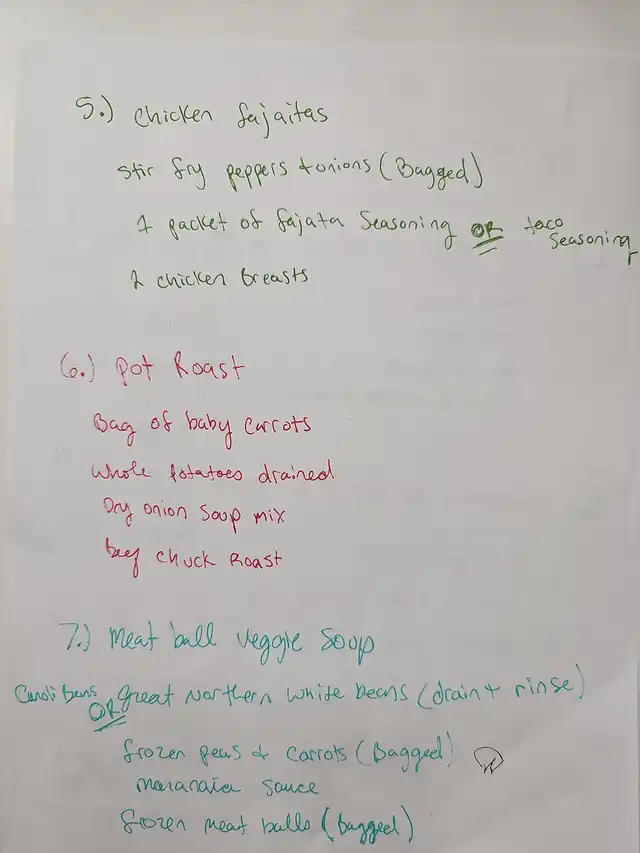 5.) Chicken fajaitas
stir fry peppers + onions (Bagged)
1 packet of fajata Seasoning OR taco Seasoning
2 chicken breasts
6.) Pot Roast
Bag of baby carrots
Whole potatoes drained
Dry onion Soup mix
beef chuck Roast
7.) Meat ball veggie Soup
Beans OR great Northern white beans (drain + rinse)
frozen peas & carrots (Bagged)
sauce
frozen meat balls (Bagged)